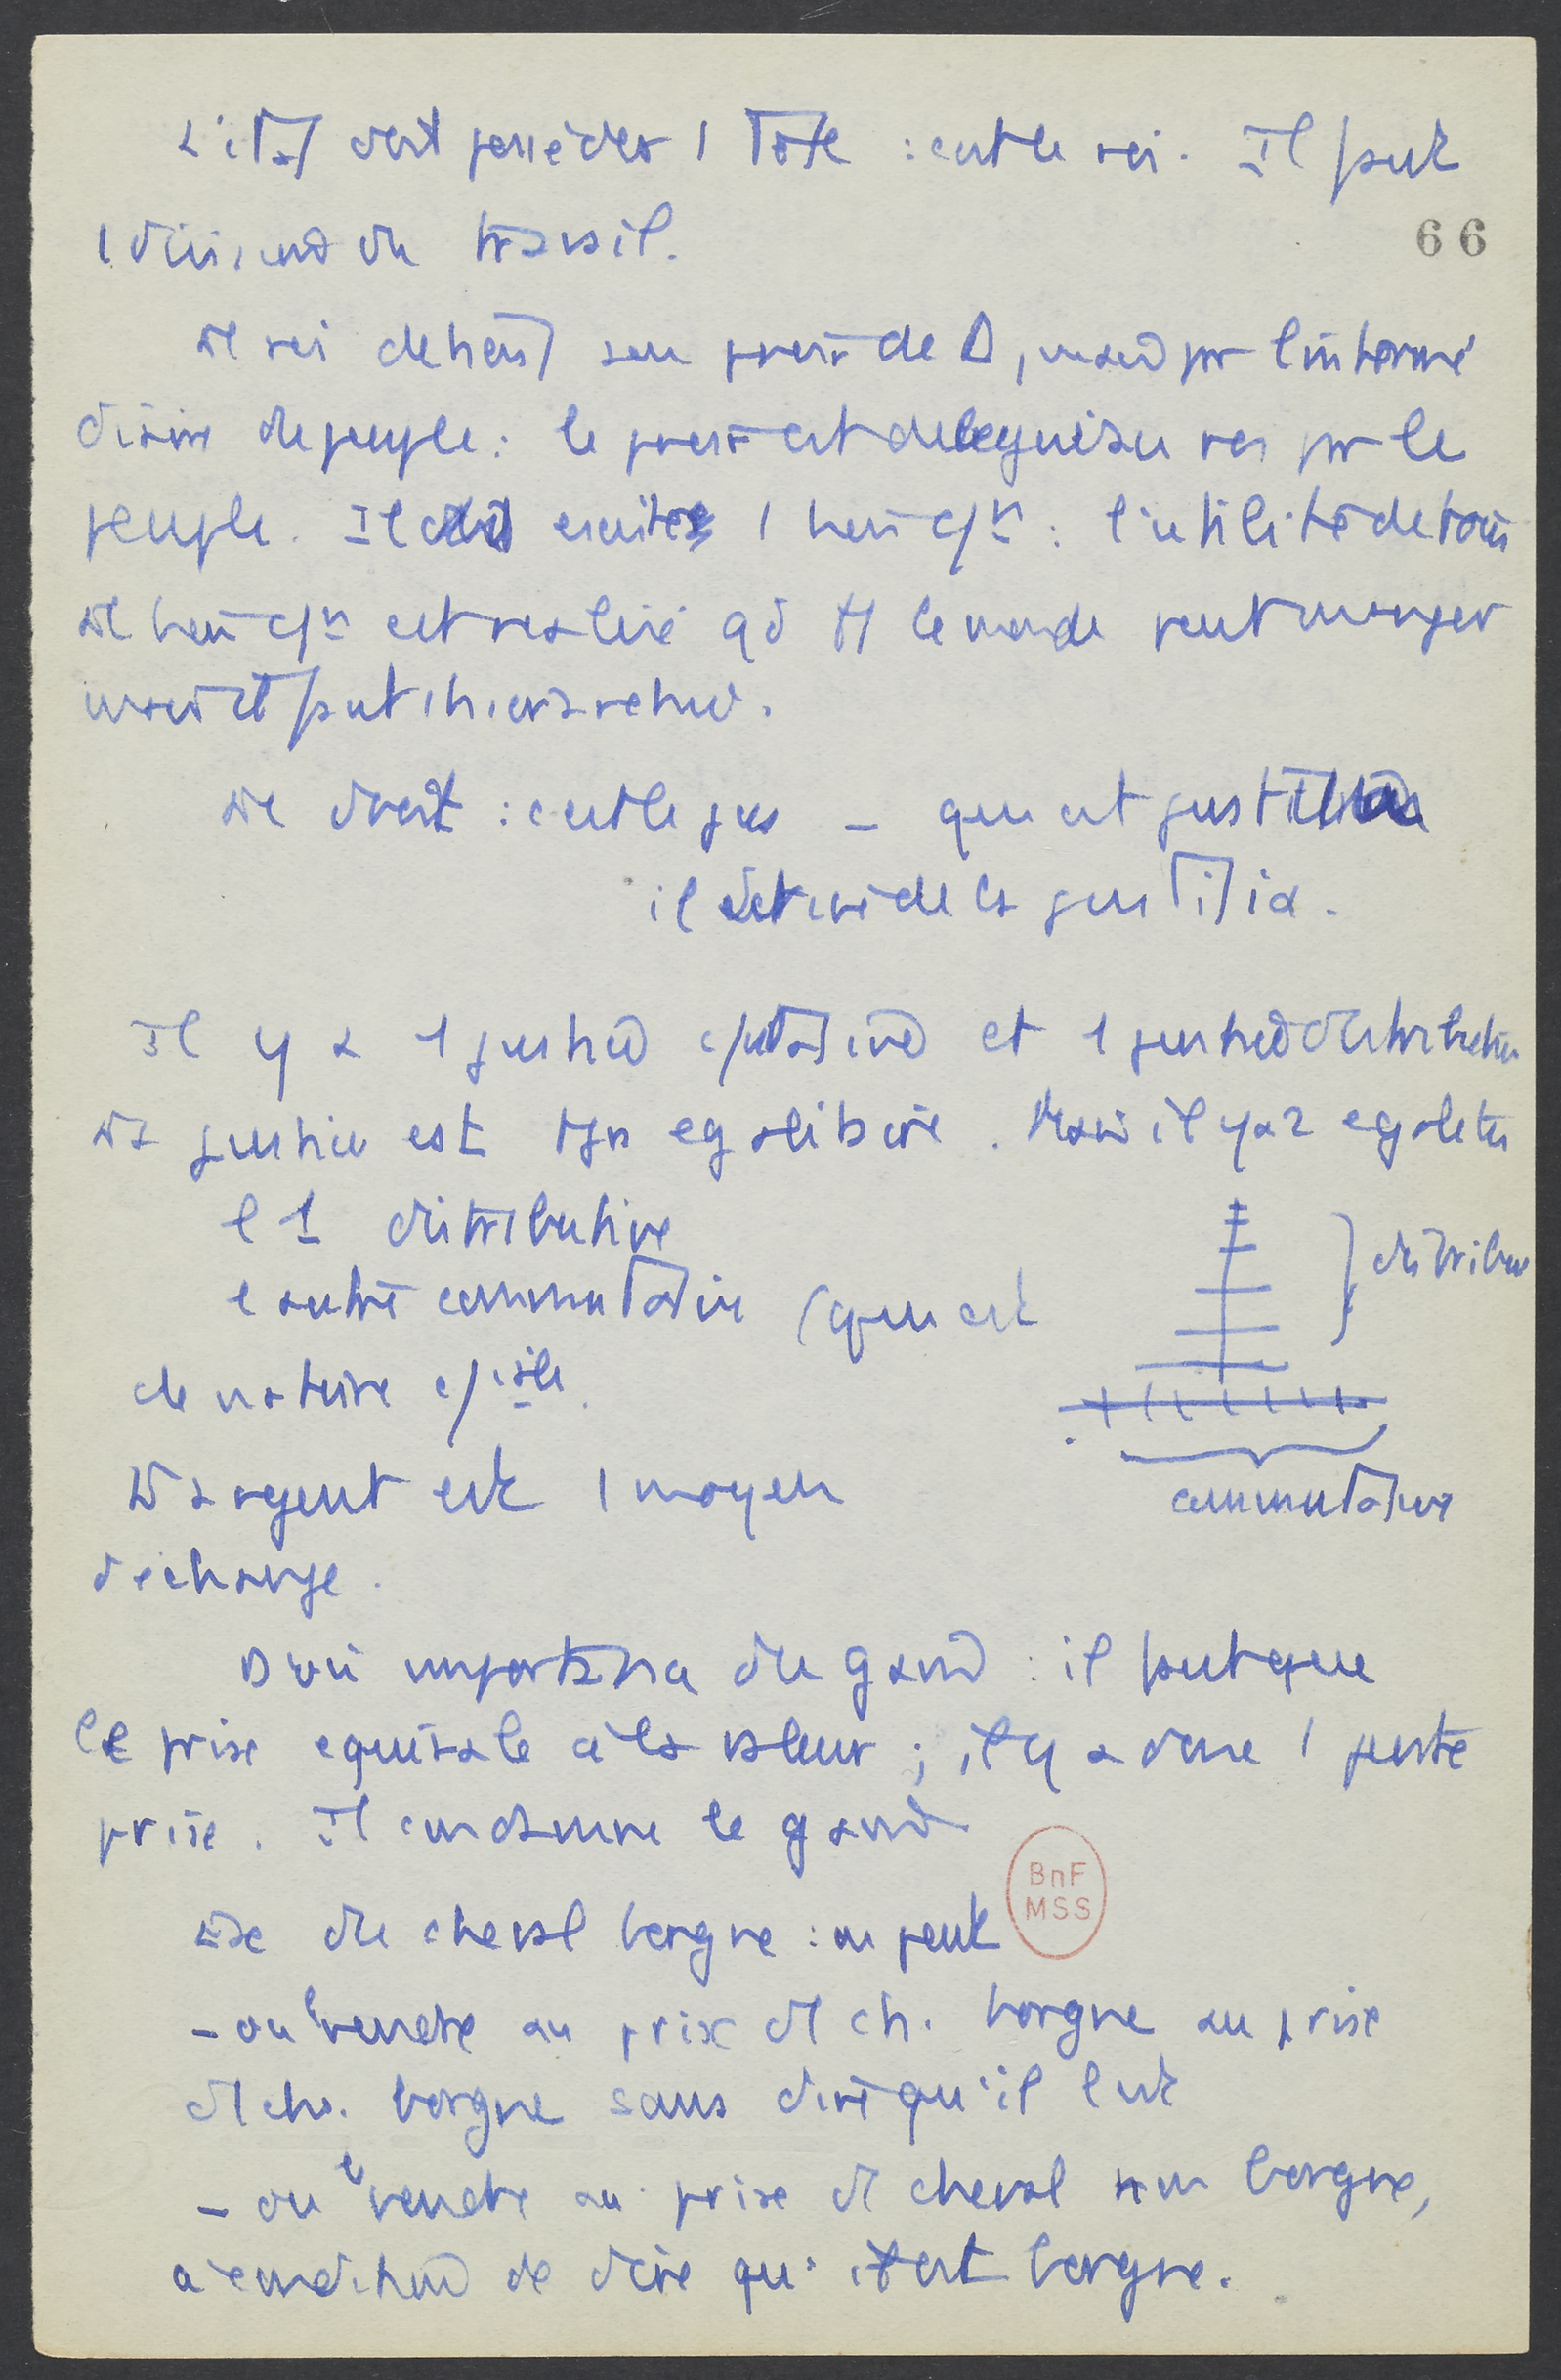 L'état doit posséder 1 tête : c'est le roi. Il faut
1 division du travail.
66
Le roi détient son pouvoir de D, mais par l'interm-
diaire du peuple : le pouvoir est délégué au roi par le
peuple. Il doit 1 : l'utilité de tous
Le est réalisé qd tt le monde peut manger
mais il faut 1 hiérarchie.
Le droit : c'est le jus – qui est
il de la justitia.
Il y a 1 justice et 1 justice distributive
La justice est tjrs égalitaire. Mais il y a 2 égalités
l'1 distributive
l'autre commutative (qui est
de nature
} distributive
L'argent est 1 moyen
commutative
d'échange.
D'où importance du gain : il faut que
le prix équivale à la valeur ; il y a donc 1 juste
prix. Il condamne le gain
BnF
MSS
du cheval borgne : on peut
– ou le vendre au prix d'1 ch. borgne au prix
d'1 ch. borgne sans dire qu'il l'est
– ou le vendre au prix d'1 cheval non borgne,
à condition de dire qu'il est borgne.